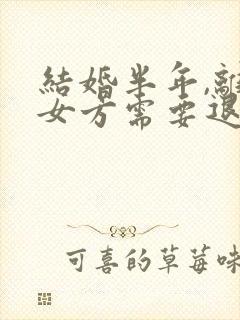 結婚半年,
女方需要退
可喜的草莓味